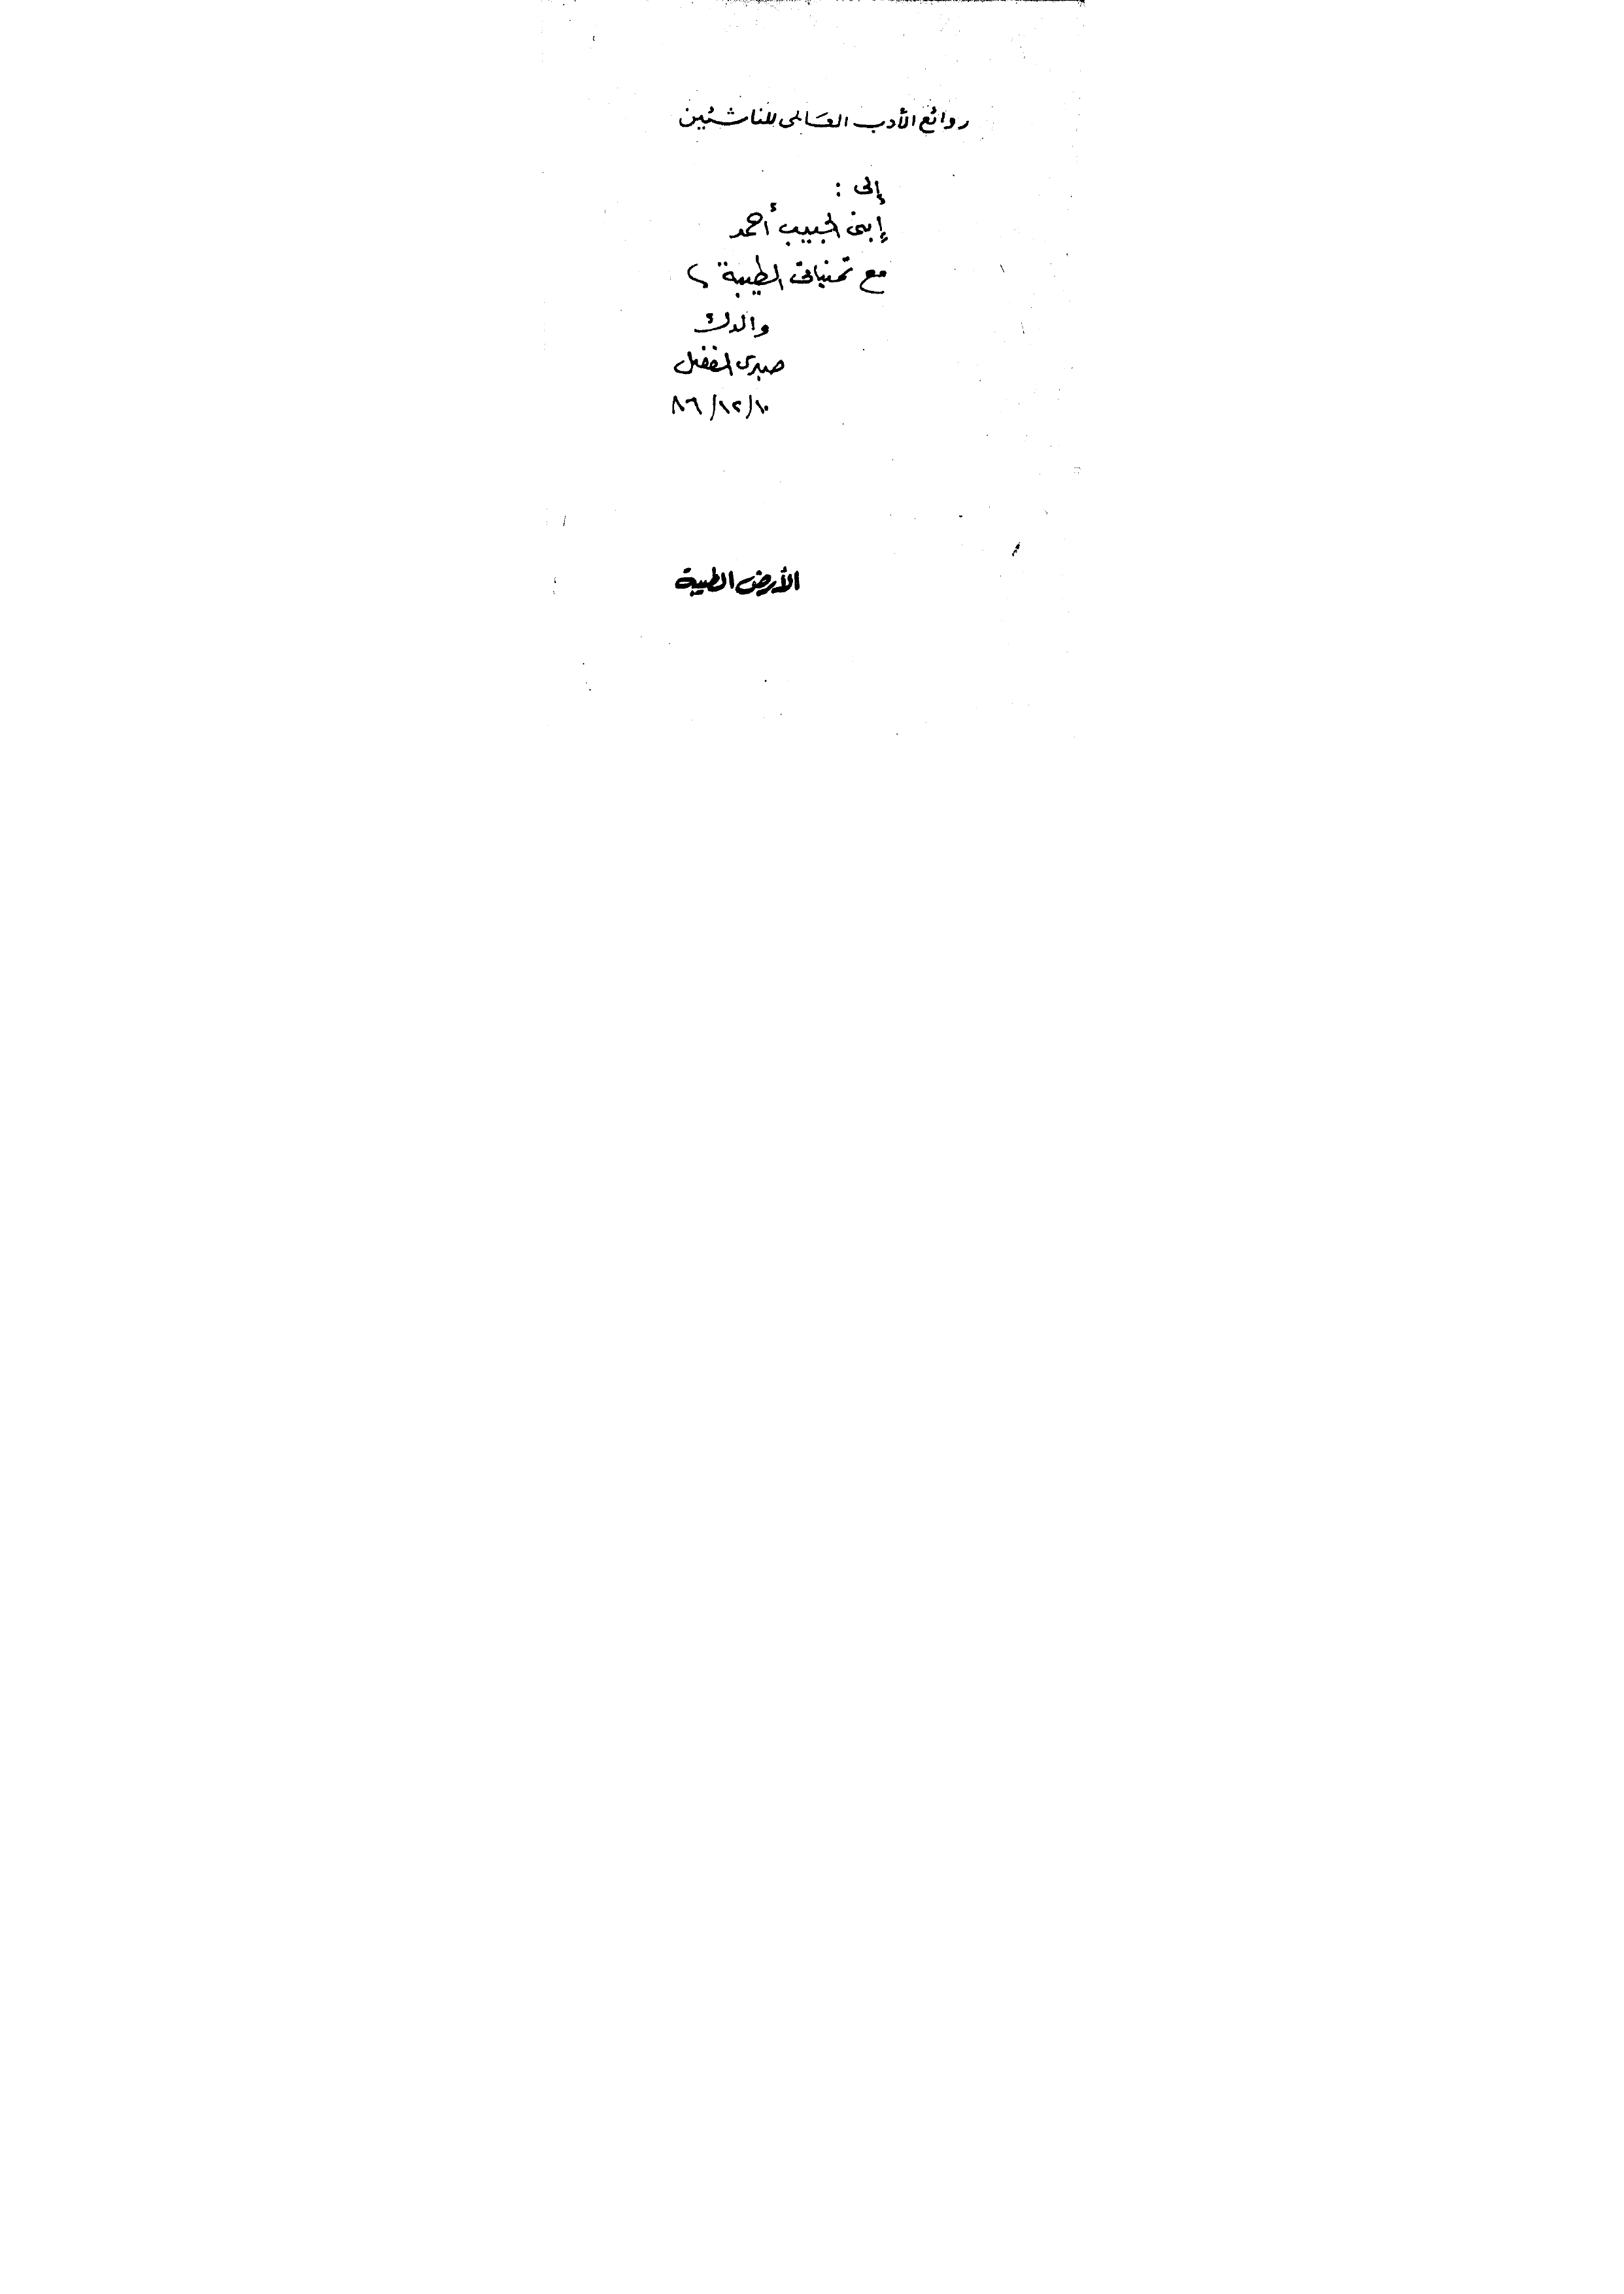 روائع الأدب العالمى للناشئين
إلى :
إبنى الحبيب أحمد
مع تمنياتى الطيبة ،
والدك
صبرى الفضل
١٠/١٢/٨٦
الأرض الطيبة